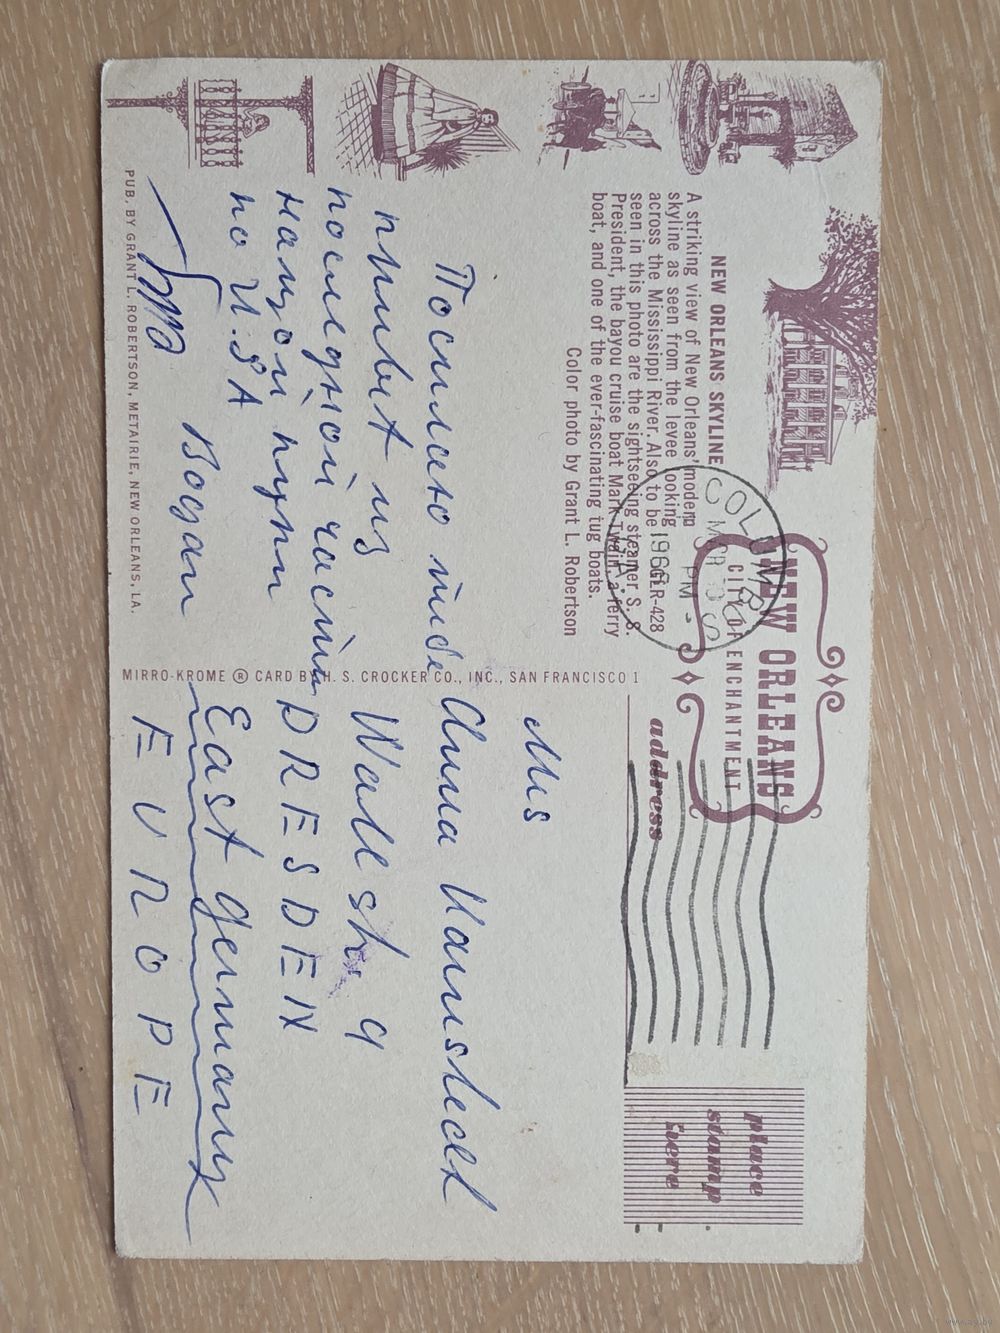 NEW ORLEANS
CITY OF ENCHANTMENT
NEW ORLEANS SKYLINE
A striking view of New Orleans' modern
skyline as seen from the levee looking
across the Mississippi River. Also to be
seen in this photo are the sightseeing steamer S. S.
President, the bayou cruise boat Mark Twain, a ferry
boat, and one of the ever-fascinating tug boats.
Color photo by Grant L. Robertson
GLR-428
COLUMBUS
MAR
PM
196
GA.
Посилаю тибе
привет из
последней части
нашои пути
по U.S.A
Богдан
PUB. BY GRANT L. ROBERTSON, METAIRIE, NEW ORLEANS, LA.
MIRRO-KROME ® CARD BY H. S. CROCKER CO., INC., SAN FRANCISCO 1
address
place
stamp
here
Mrs
Anna
Wallstr 9
DRESDEN
East Germany
EUROPE